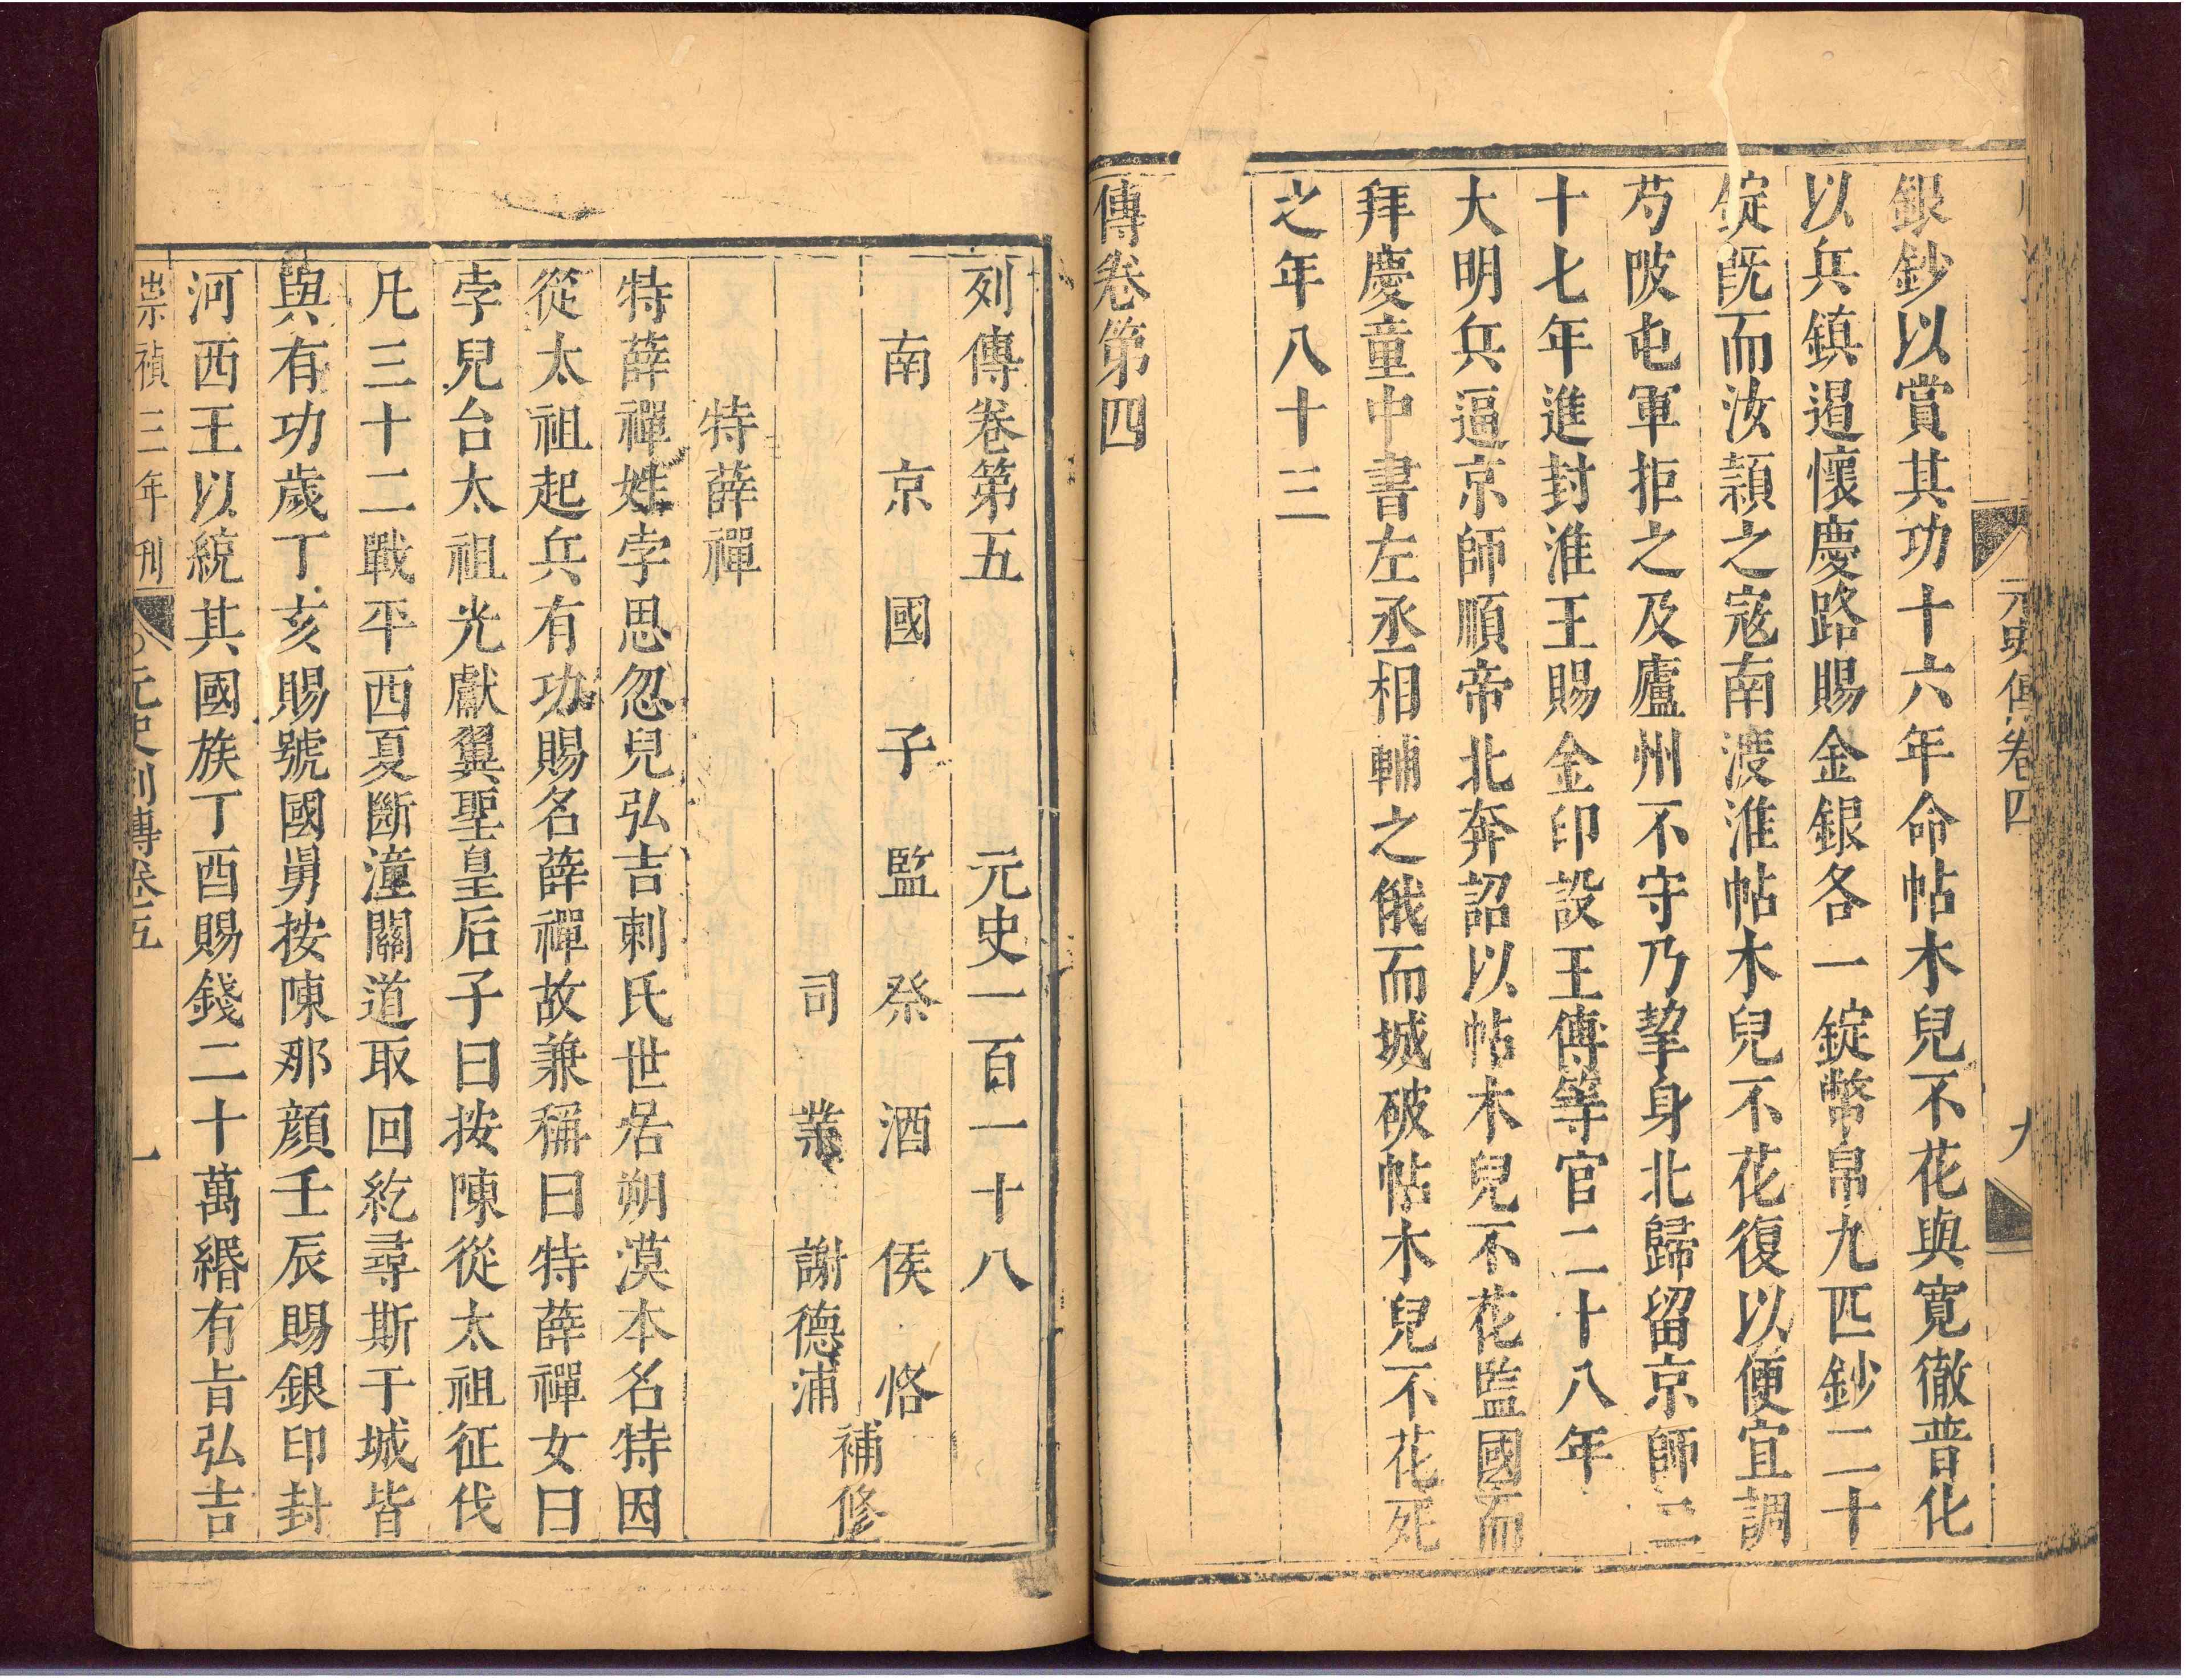 元史傳卷四
銀鈔以賞其功十六年命帖木兒不花與寬徹普化
以兵鎮遏懷慶路賜金銀各一錠幣帛九匹鈔二十
錠旣而汝頴之宼南渡淮帖木兒不花復以便宜調
芍陂屯軍拒之及廬州不守乃挈身北歸留京師二
十七年進封淮王賜金印設王傅等官二十八年
大明兵逼京師順帝北奔詔以帖木兒不花監國而
拜慶童中書左丞相輔之俄而城破帖木兒不花死
之年八十三
傳卷第四
列傳卷第五 元史一百一十八
南京國子監祭酒侯恪
司業謝德溥
補修
特薛禪
特薛禪姓孛思忽兒弘吉剌氏世居朔漠本名特因
從太祖起兵有功賜名薛禪故兼稱曰特薛禪女曰
孛兒台太祖光獻翼聖皇后子曰按陳從太祖征伐
凡三十二戰平西夏斷潼關道取回紇尋斯干城皆
與有功歲丁亥賜號國舅按陳那顏壬辰賜銀印封
河西王以統其國族丁酉賜錢二十萬緡有旨弘吉
崇禎三年刊 元史列傳卷五 一